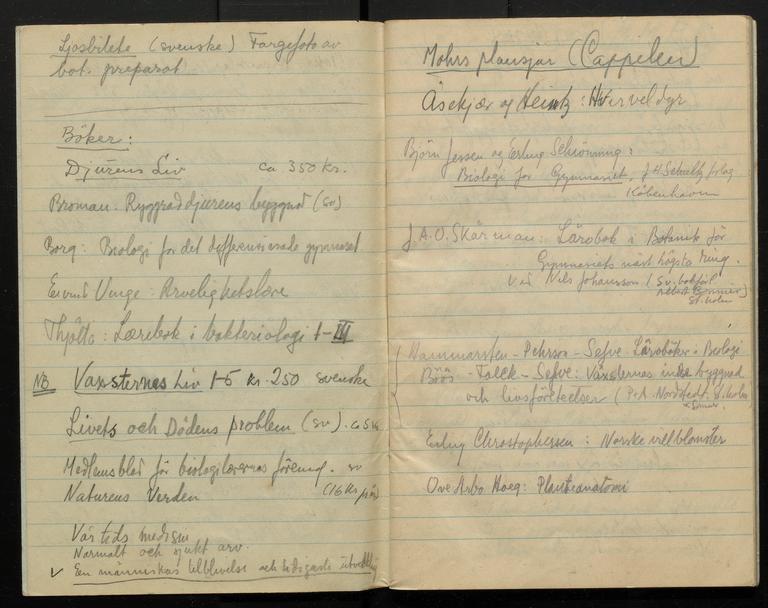 Ljosbilete (svenske) Fargefoto av
bot. preparat
Bøker:
Djurens Liv ca 350 kr.
Broman: Ryggraddjurens byggnad (sv)
Borg: Biologi för det differentierade gymnaset
Unge: Arvelighetslære
Thjøtta: Lærebok i bakteriologi I-III
NB Växternas Liv 1-5 kr. 250 svenske
Livets och Dödens problem (sv). ca 5 kr
Medlemsblad för biologilärernas förening. sv
Naturens Verden (16 kr pr år)
Vår tids medisin
Normalt och sjukt arv.
✓ En människas tilblivelse och tidigaste utveckling
Mohrs plansjar (Cappelen)
Åsekjær og Heintz: Hvirveldyr
Björn Jessen og Erling Schiönning:
Biologi for Gymnasiet, J.H. Schultz forlag
København
J.A.O. Skårman: Lärobok i Botanik för
Gymnasiets näst högsta ring.
v ad Nils Johansson / Sv. bokförl
Albert Bonnier
St.holm
Hammarsten - Pehrson - Sefve Läroböker i Biologi
Böös - Falck - Sefve: Växternas inre byggnad
och livsföreteelser (P.A. Norstedt. St.holm)
& Sönner
Erling Christophersen: Norske villblomster
Ove Arbo Høeg: Planteanatomi